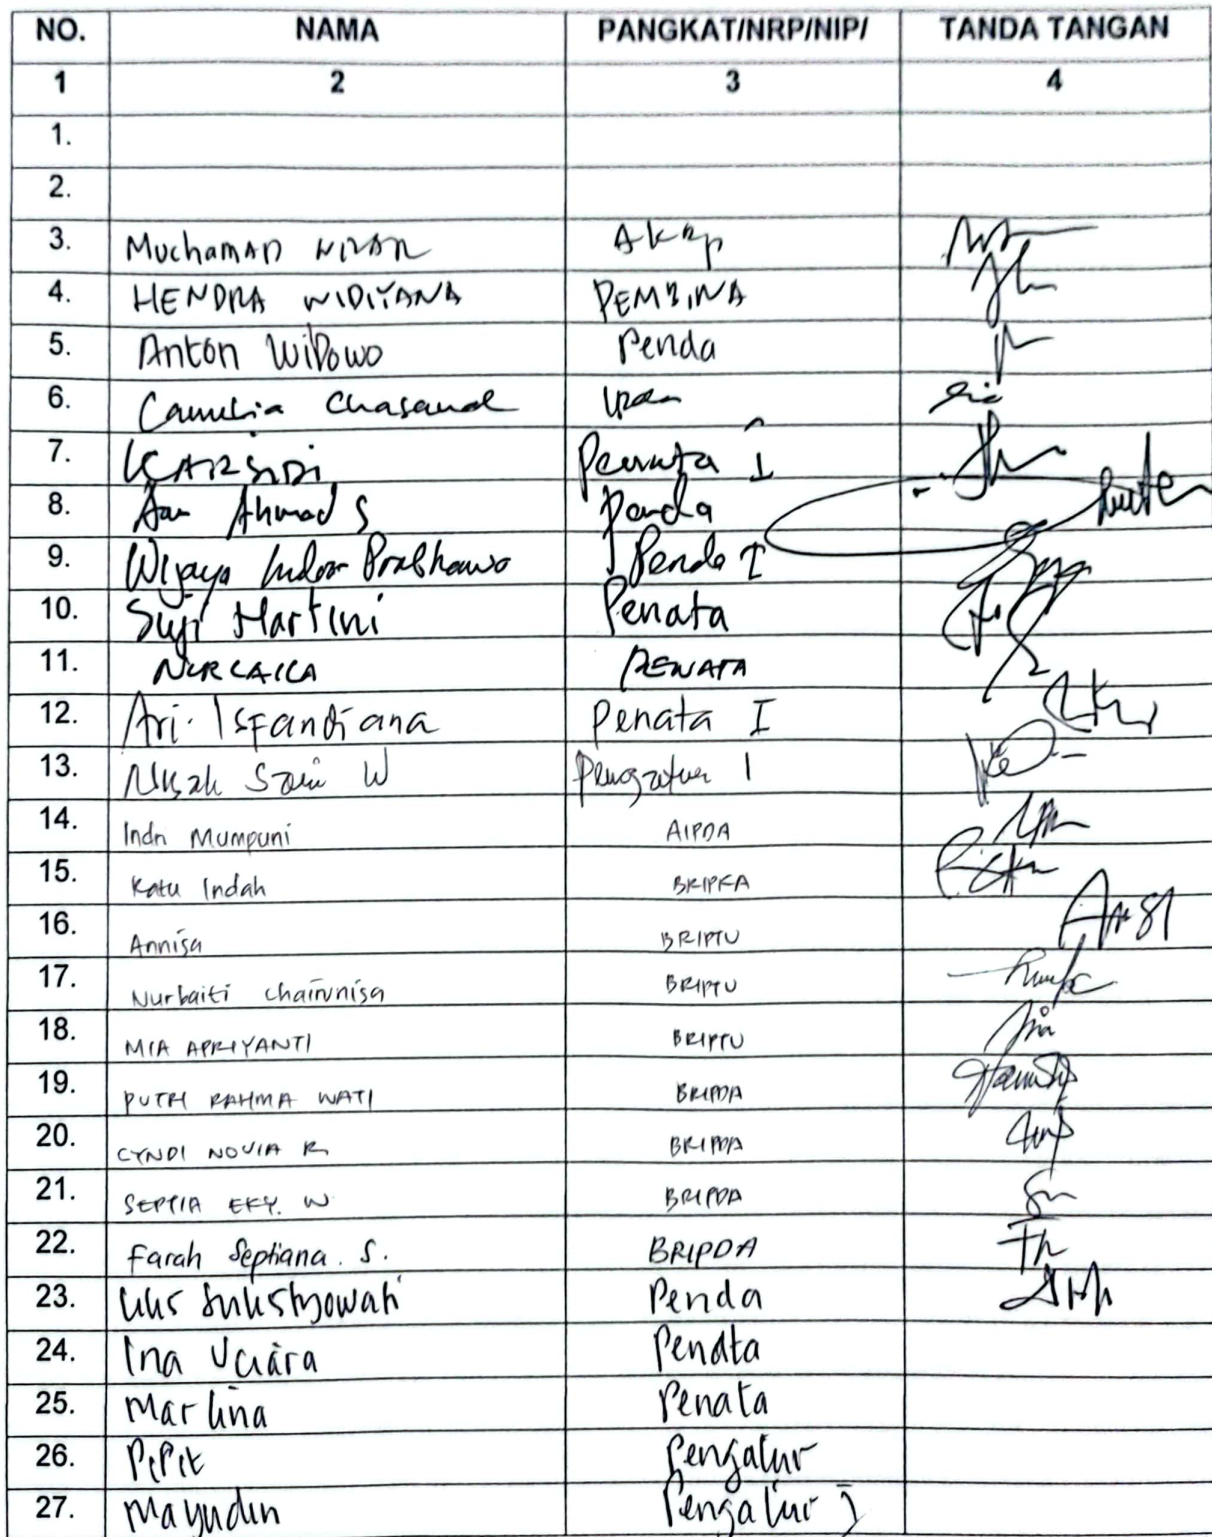 NO. NAMA PANGKAT/NRP/NIP/ TANDA TANGAN
1 2 3 4
1.
2.
3. Muchamad Nizar AKBP
4. HENDRA WIDIYANA PEMBINA
5. Anton Widowo Penda
6. Camelia Chasanal
7. KARSIDI Penata I
8. Aan Ahmad S Penda
9. Wijaya Indra Prabhawa Penda I
10. Suji Martini Penata
11. NURLAILA PENATA
12. Ari Isfandiana Penata I
13. W Pengatur I
14. Indri Mumpuni AIPDA
15. Ratu Indah BRIPKA
16. Annisa BRIPTU
17. Nurbaiti Chairunisa BRIPTU
18. MIA APRIYANTI BRIPTU
19. PUTRI RAHMA WATI BRIPDA
20. CYNDI NOVIA R BRIPDA
21. SEPTIA EKY. W BRIPDA
22. Farah Septiana. S. BRIPDA
23. Penda
24. Ina Penata
25. Marlina Penata
26. PiPit Pengatur
27. Mayudin Pengatur I